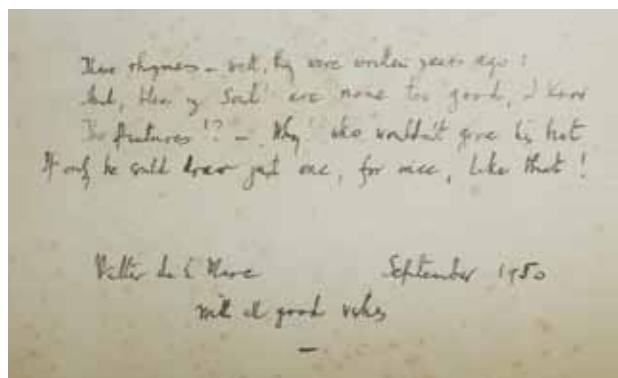 These rhymes – well, they were written years ago:
And, bless my Soul! are none too good, I know
The Pictures!? – Why! who wouldn't give his hat
If only he could draw just one, for once, like that!
Walter de la Mare September 1950
with all good wishes